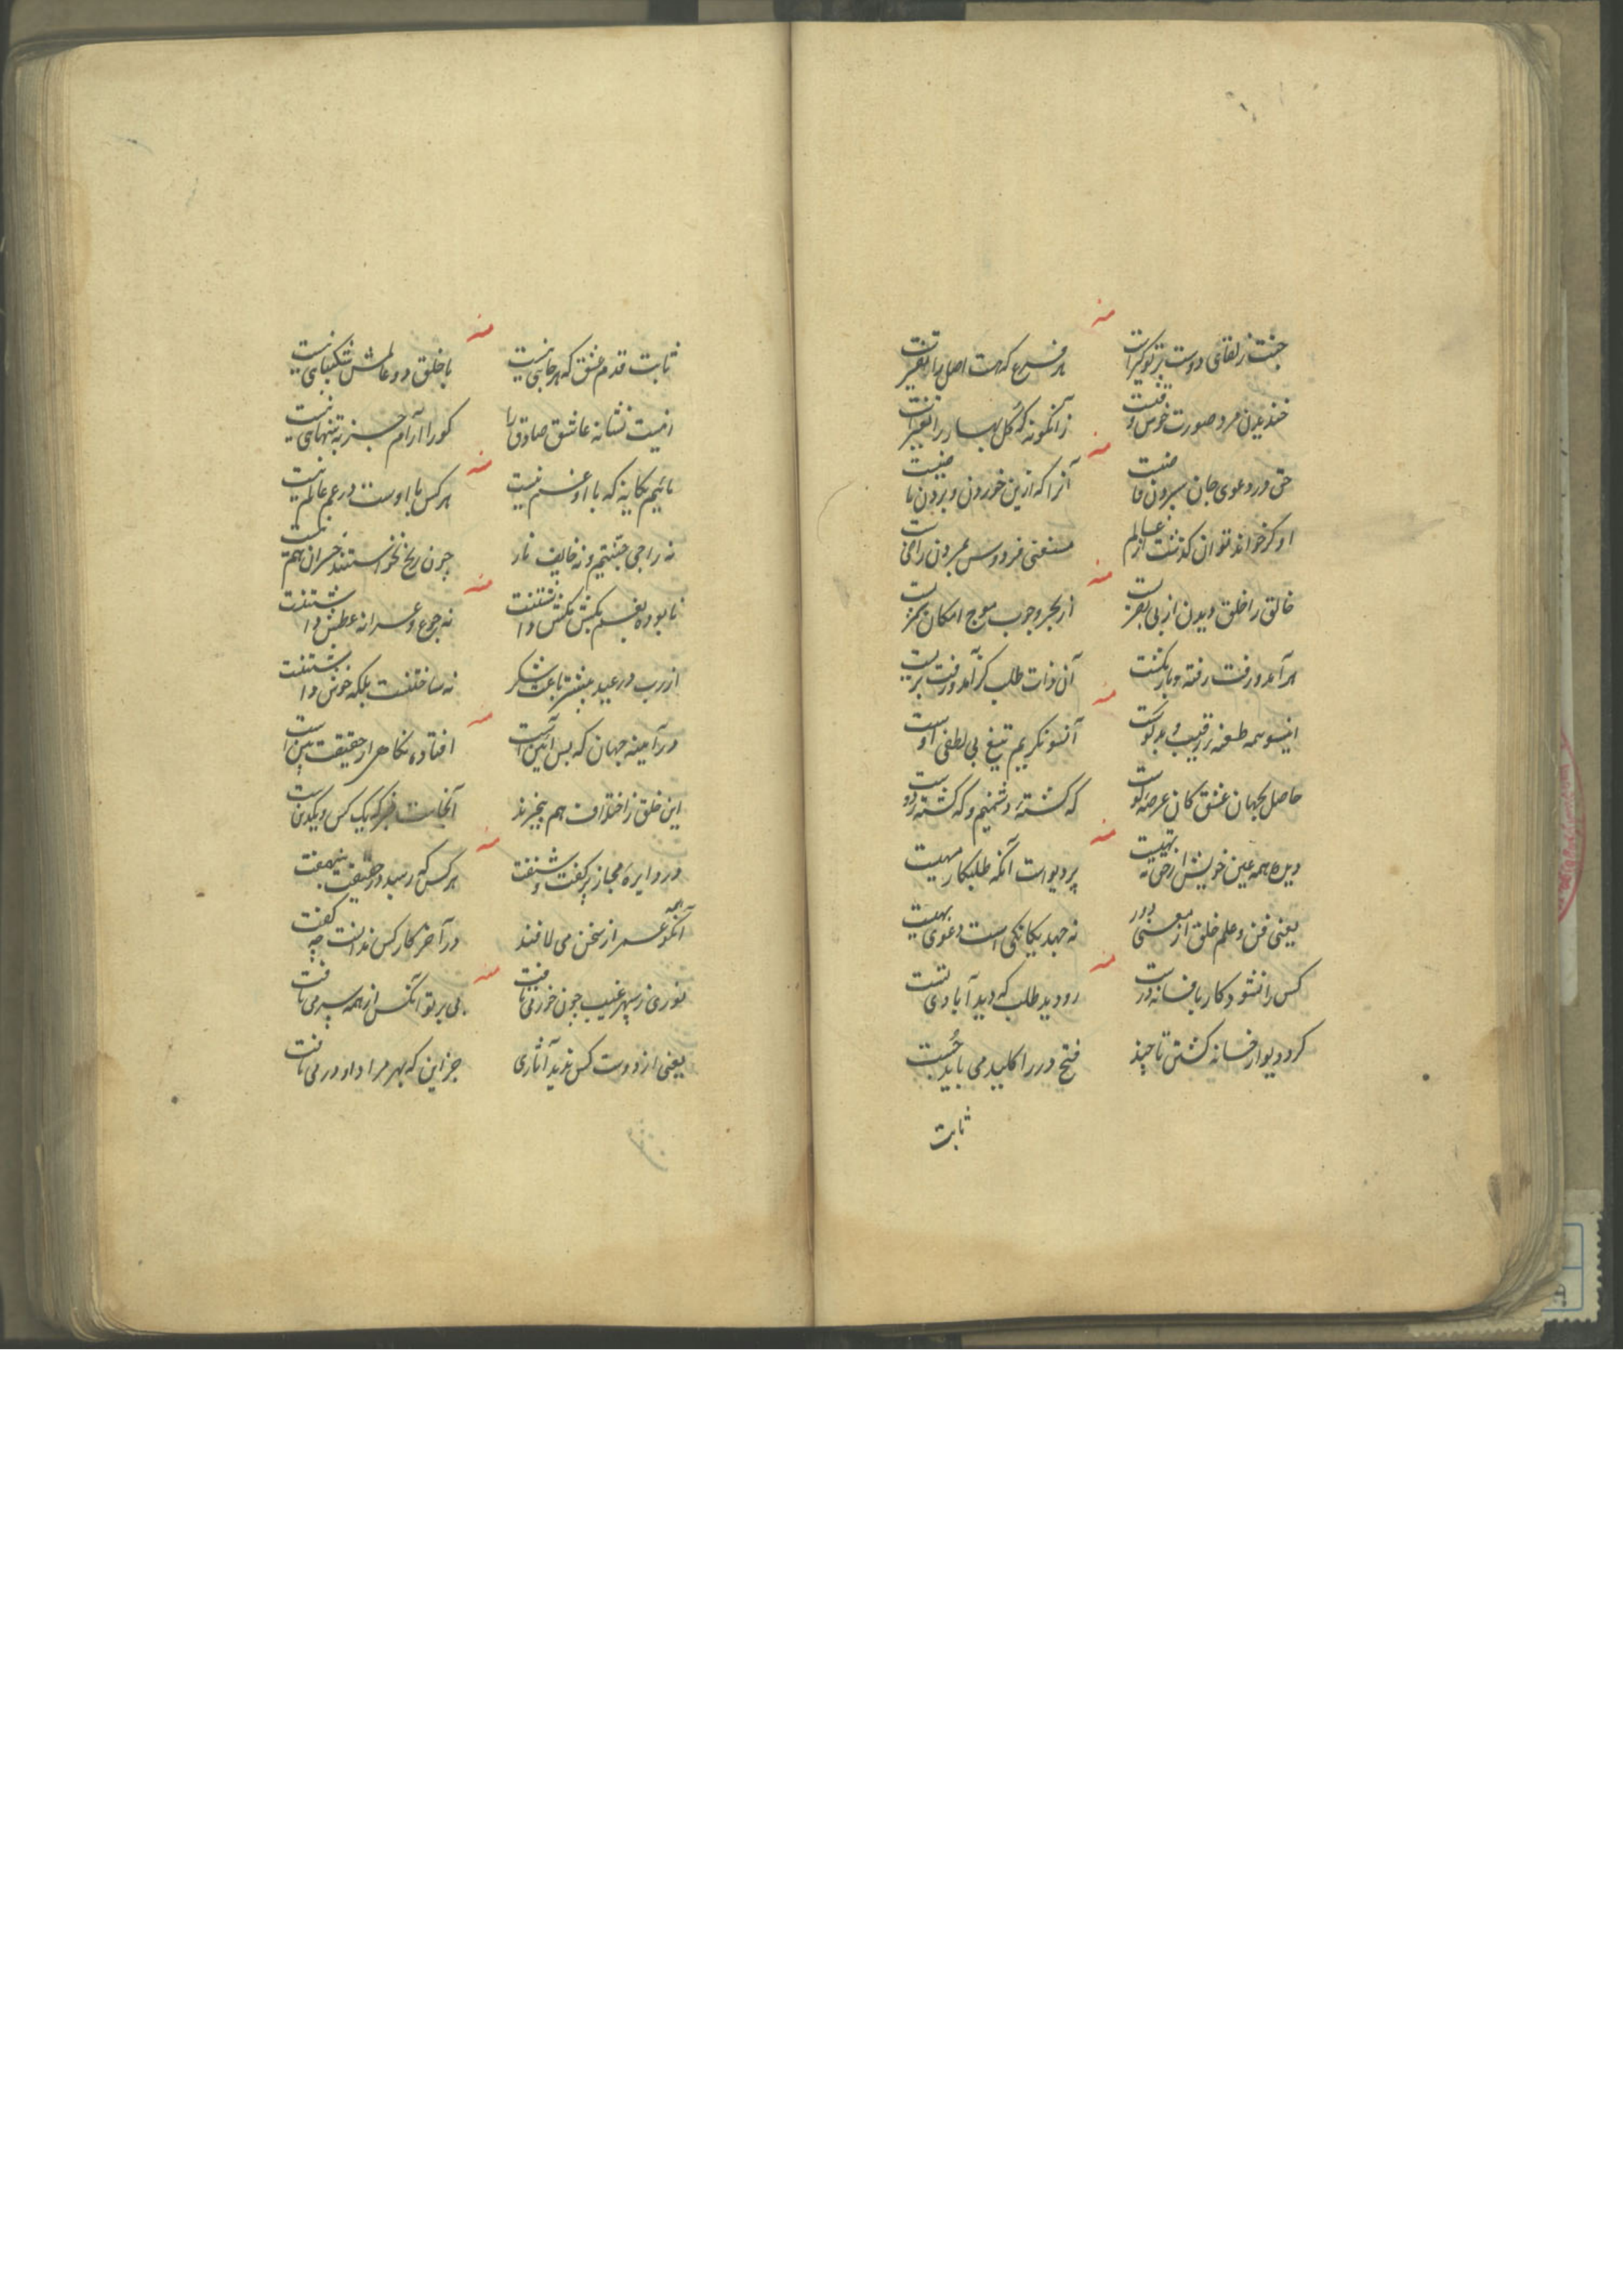 منه
جنت ز لقای دوست پرتوگیر است
هر فرع که هست اصل را تفسیر است
خندیدن مرد صورت خوش وقتیست
زانگونه که گل بهار را تعبیر است
منه
حق در دعوی جان سپردن قاضیست
آنرا که ازین خوردن و بردن ماضیست
او گر خواند توان گذشت از عالم
مستغنی فردوس بمردن راضیست
منه
خالق را خلق دیدن از بی بصریست
از بحر وجوب موج امکان
هر آمد و رفت رفته و باز نگشت
آن ذات طلب کز آمد و رفت بریست
منه
اینسو همه طعنه رقیب و بدگوست
آنسو نگریم تیغ بی لطفی اوست
حاصل بجهان عشق کان عرصه اوست
که کشته دشمنیم و که کشته دوست
منه
دیدن همه عین خویش از حق تهیست
پر دیو است آنکه طلبکار مهیست
یعنی فن و علم خلق از معنی دور
نه جهد یگانگی است دعوی بهیست
منه
کس را نشود کار بافسانه درست
رو دید طلب که دید آبادی تست
گرد دیوار فسانه گشتن تا چند
فتح در را کلید می باید جست
ثابت
منه
ثابت قدم عشق که هرجایی نیست
با خلق دو عالمش شکیبایی نیست
اینست نشانه عاشق صادق را
کو را آرام جز به تنهایی نیست
منه
مائیم یگانه که با او غم نیست
هر کس با اوست در غم عالم نیست
نه راجی جنتیم و نه خایف نار
چون ربح نخواستند خسران هم نیست
منه
نابوده بغم بکش مکش داشتنت
نه جوع و سرانه عطش داشتنت
از رب در عید بیشتر باعث شکر
نه ساختنست بلکه خوش داشتنت
منه
در آینه جهان که بس آیین است
افتاده نگاهی او حقیقت بین است
این خلق ز اختلاف هم بیخبرند
آنجاست خبر که یک کس و یکدین است
منه
در دایره مجاز پر گفت و شنفت
هر کس که رسید در حقیقت بنهفت
آنکو همه عمر از سخن می لافید
در آخر کار کس ندانست چه گفت
منه
نوری ز سپهر غیب چون خور می تافت
بی پرتو آنکس از همه سر می تافت
یعنی از دوست کس ندید آثاری
جز این که بهر مراد او در می یافت